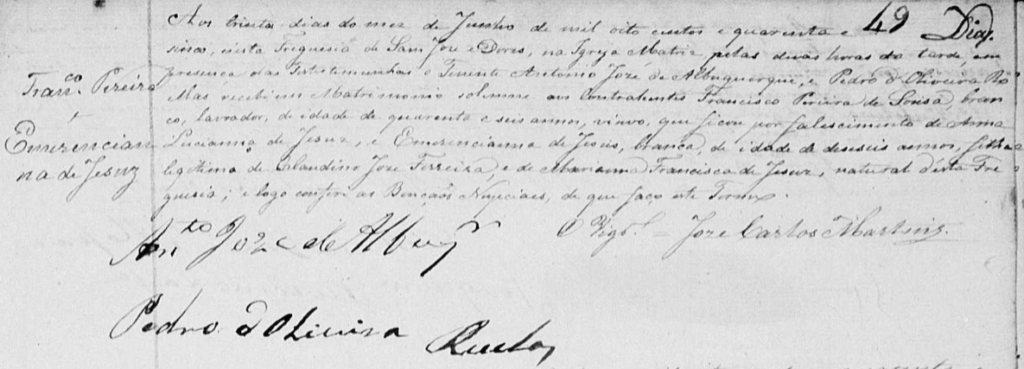 49 Diaz.
Aos trinta dias do mez de Junho de mil oito centos e quarenta e
sinco, nesta Freguesia de Sam Joze e Dores, na Igreja Matriz pelas duas horas da tarde, em
Fran.co Pereira
presenca das Testetemunhas o Tenente Antonio Jozé de Albuquerque, e Pedro d'Oliveira
Mas recebi em Matrimonio solemne aos Contrahentes Francisco Pereira de Sousa, bran-
e
co, Lavrador, de idade de quarenta e seis annos, viuvo, que ficou por falescimento de Anna
Emerencian
Lucianna de Jesuz, e Emerencianna de Jesus, branca, de idade de deseseis annos, filha
na de Jesuz
legitima de Claudino Joze Ferreira, e de Marianna Francisca de Jesuz, natural d'esta Fre
guesia; e logo conferi as Bençãos Nupciaes, de que faço este Termo.
O Vigr.º Joze Carlos Martins.
An.to Joze de Albuqr
Pedro d'Oliveira